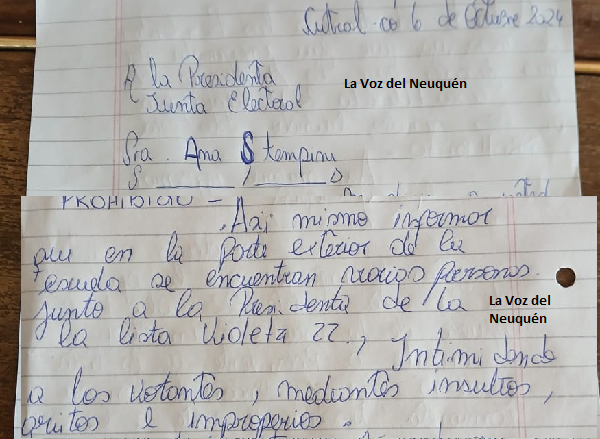 Cutral-có 6 de Octubre 2024
A la Presidenta
Junta Electoral
La Voz del Neuquén
Sra. Ana Stempini
S ______ / ______ D
PROHIBIDO -
Asi mismo informar
que en la parte exterior de la
escuela se encuentran varias personas.
junto a la Presidenta de la
La Voz del
Neuquén
la lista Violeta 22., Intimidando
a los votantes, mediantes insultos,
gritos e improperios.